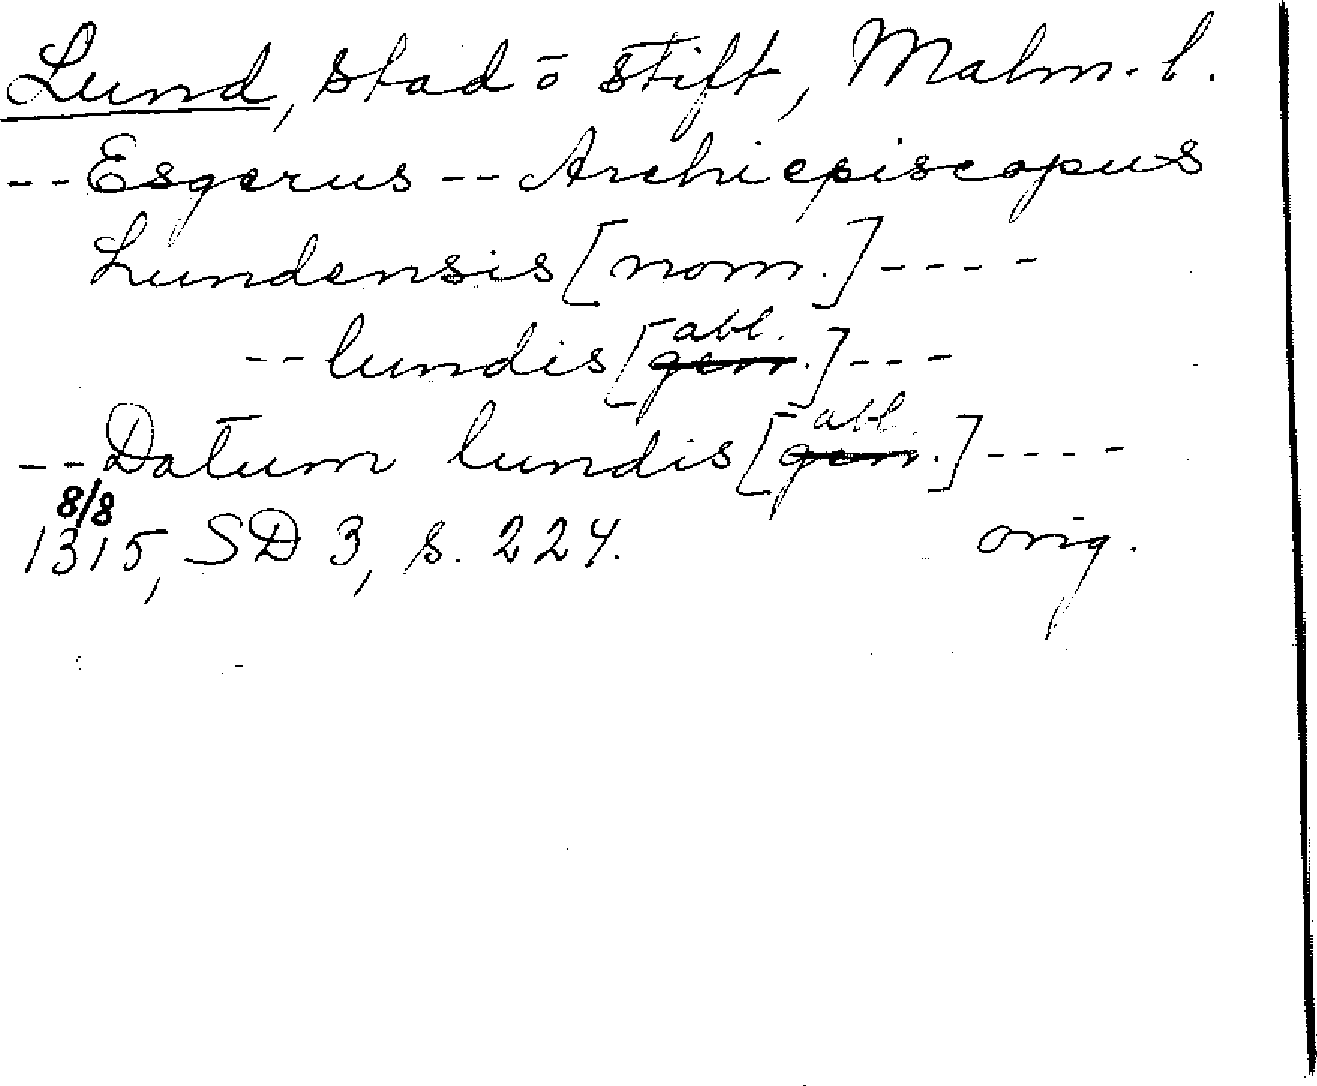 Lund, stad o stift, Malm. l.
-- Esgerus -- Archiepiscopus
Lundensis [nom.] ----
-- lundis [gen. abl.] ---
-- Datum lundis [gen. abl.] ----
8/8
1315, SD 3, s. 224. orig.